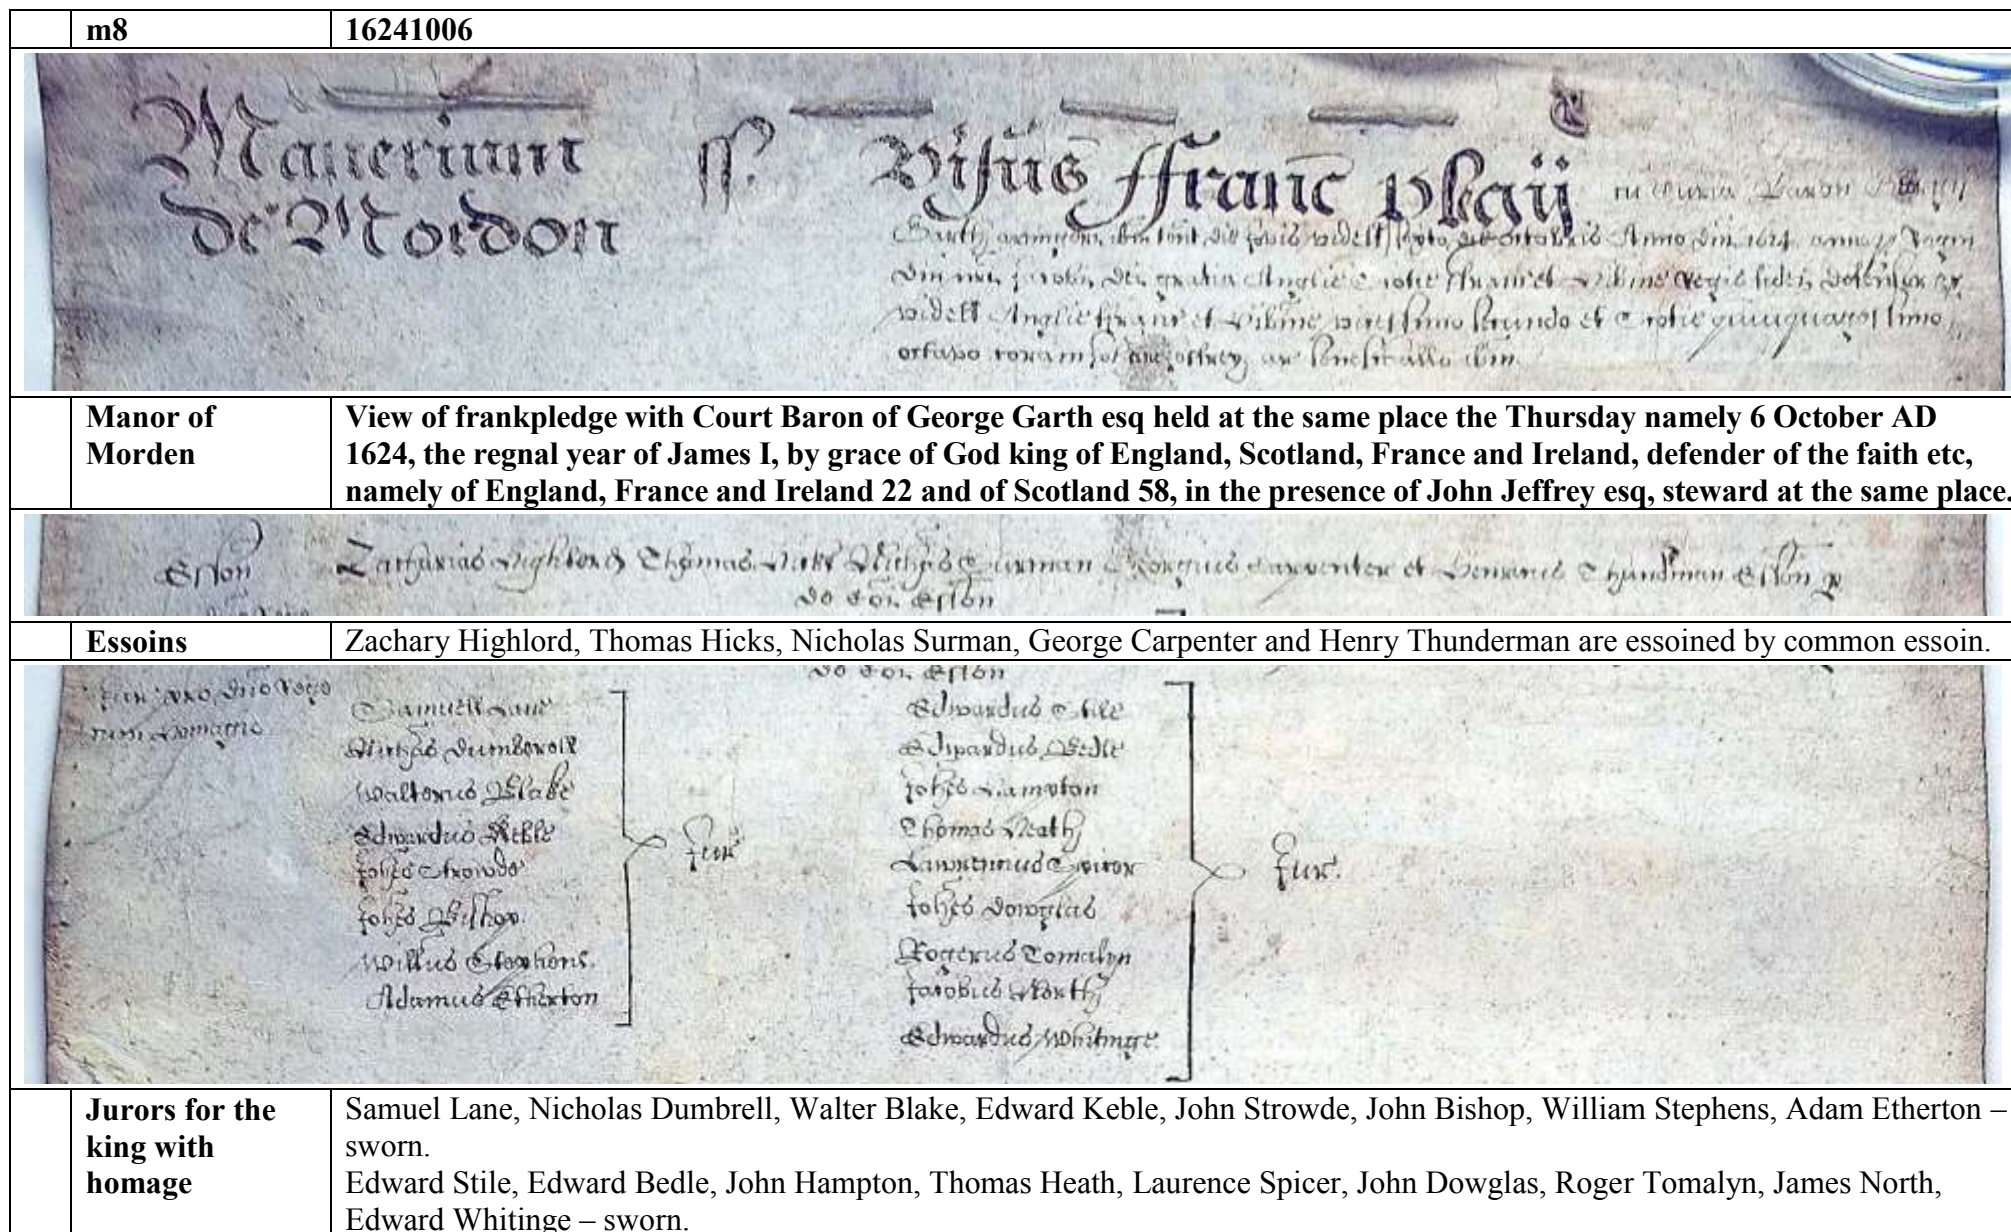 m8 16241006
Manerium ss. Visus ffranc plegij cu Curia Baron
de Mordon
Anno Dni 1624
dei gratia Anglie
videlt Anglie ffranc et Hibnie vicessimo secundo et Scotie quinquagessimo
octavo coram
Manor of Morden View of frankpledge with Court Baron of George Garth esq held at the same place the Thursday namely 6 October AD
1624, the regnal year of James I, by grace of God king of England, Scotland, France and Ireland, defender of the faith etc,
namely of England, France and Ireland 22 and of Scotland 58, in the presence of John Jeffrey esq, steward at the same place.
Esson Zacharias Highlord Thomas Hicks Nichus Surman Georgius Carpenter et Henricus Thunderman Esson p
de Coi Esson
Essoins Zachary Highlord, Thomas Hicks, Nicholas Surman, George Carpenter and Henry Thunderman are essoined by common essoin.
de Coi Esson
Jur pro Dno Rege
cum Homagio
Samuell Lane
Nichas Dumbrell
Walterus Blake
Edwardus Keble
Johes Strowde
Johes Bishop
Willus Stephens
Adamus Etherton
Jur
Edwardus Stile
Edwardus Bedle
Johes Hampton
Thomas Heath
Laurencius Spicer
Johes Dowglas
Rogerus Tomalyn
Jacobus North
Edwardus Whitinge
Jur.
Jurors for the king with homage Samuel Lane, Nicholas Dumbrell, Walter Blake, Edward Keble, John Strowde, John Bishop, William Stephens, Adam Etherton –
sworn.
Edward Stile, Edward Bedle, John Hampton, Thomas Heath, Laurence Spicer, John Dowglas, Roger Tomalyn, James North,
Edward Whitinge – sworn.